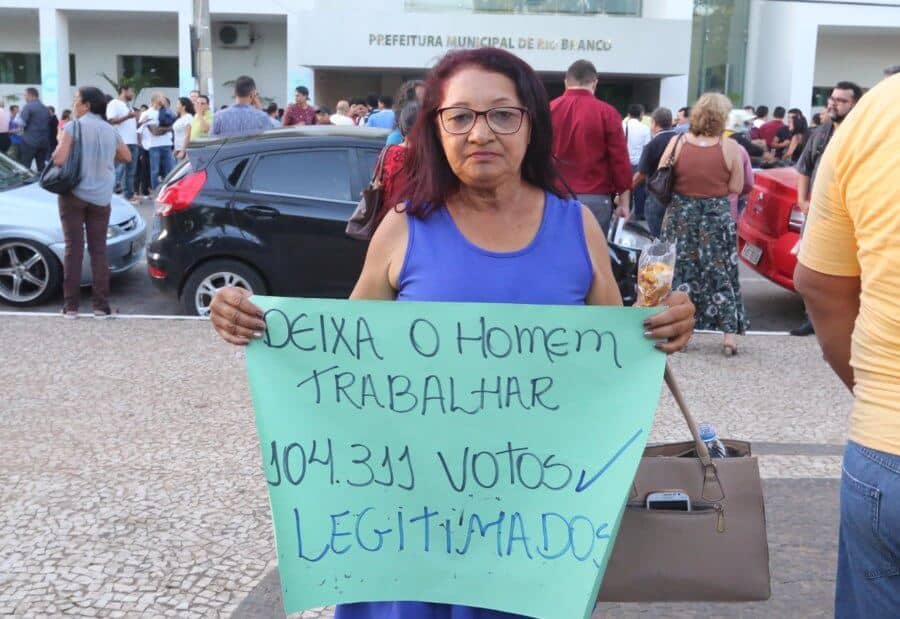 PREFEITURA MUNICIPAL DE RIO BRANCO
DEIXA O HOMEM
TRABALHAR
104.311 VOTOS ✓
LEGITIMADOS